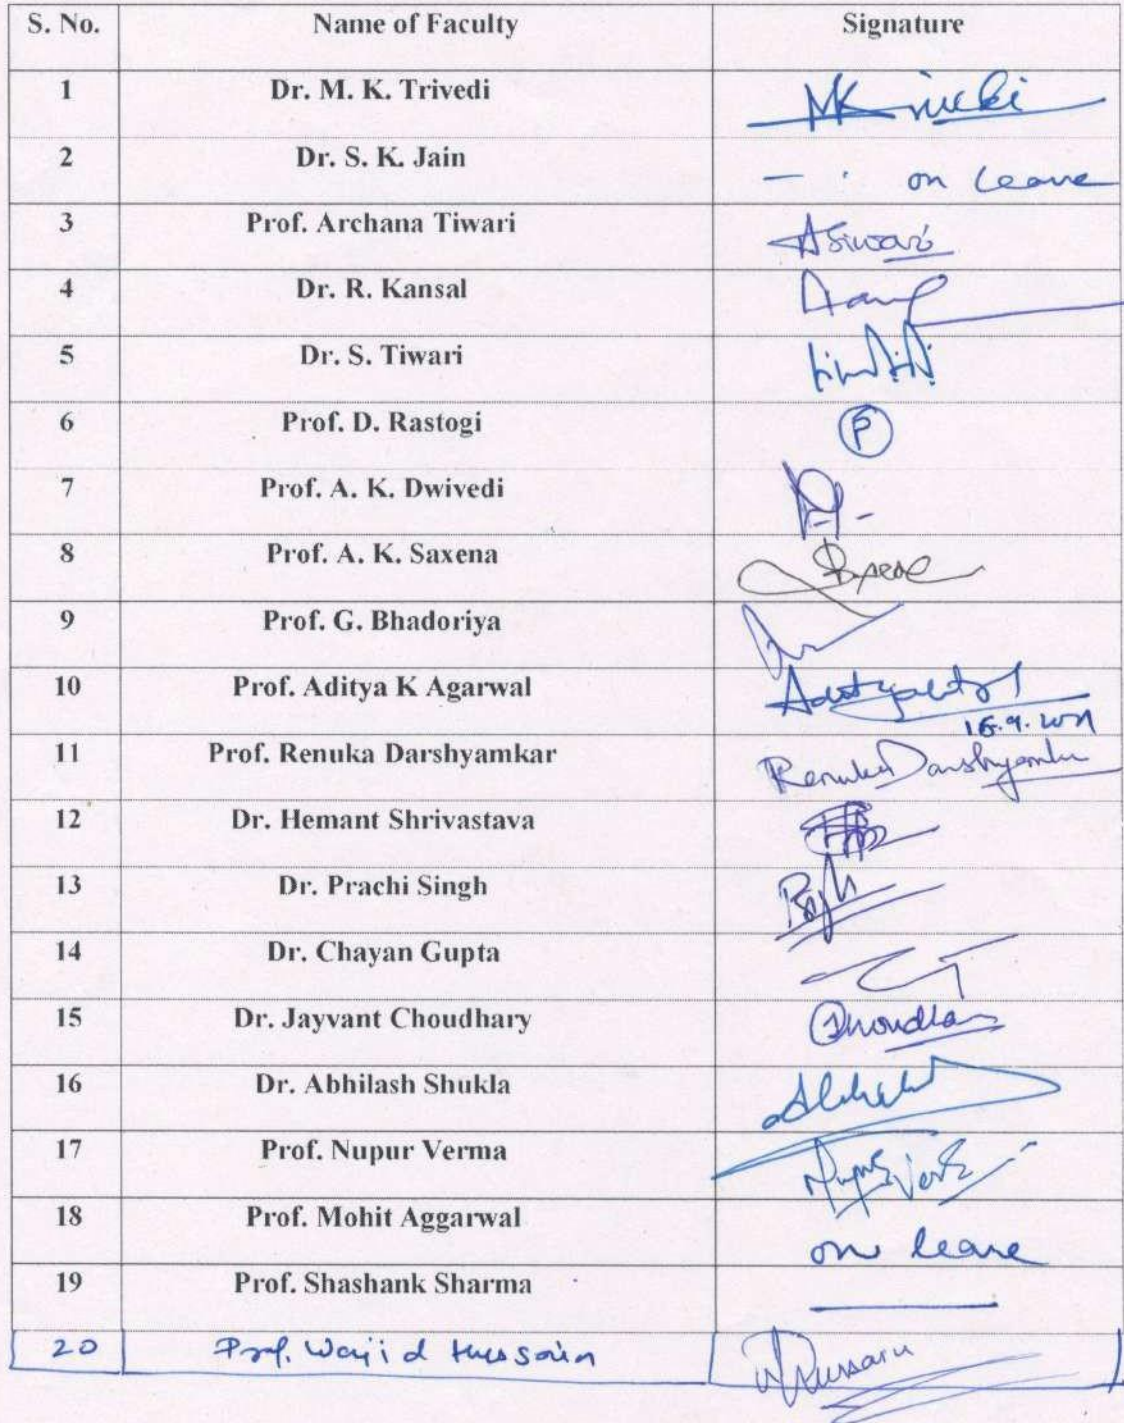 S. No. Name of Faculty Signature
1 Dr. M. K. Trivedi
2 Dr. S. K. Jain - . on leave
3 Prof. Archana Tiwari
4 Dr. R. Kansal
5 Dr. S. Tiwari
6 Prof. D. Rastogi P
7 Prof. A. K. Dwivedi
8 Prof. A. K. Saxena
9 Prof. G. Bhadoriya
10 Prof. Aditya K Agarwal
11 Prof. Renuka Darshyamkar Renuka Darshyamkar
12 Dr. Hemant Shrivastava
13 Dr. Prachi Singh
14 Dr. Chayan Gupta
15 Dr. Jayvant Choudhary
16 Dr. Abhilash Shukla
17 Prof. Nupur Verma
18 Prof. Mohit Aggarwal on leave
19 Prof. Shashank Sharma
20 Prof. Wajid Hussain